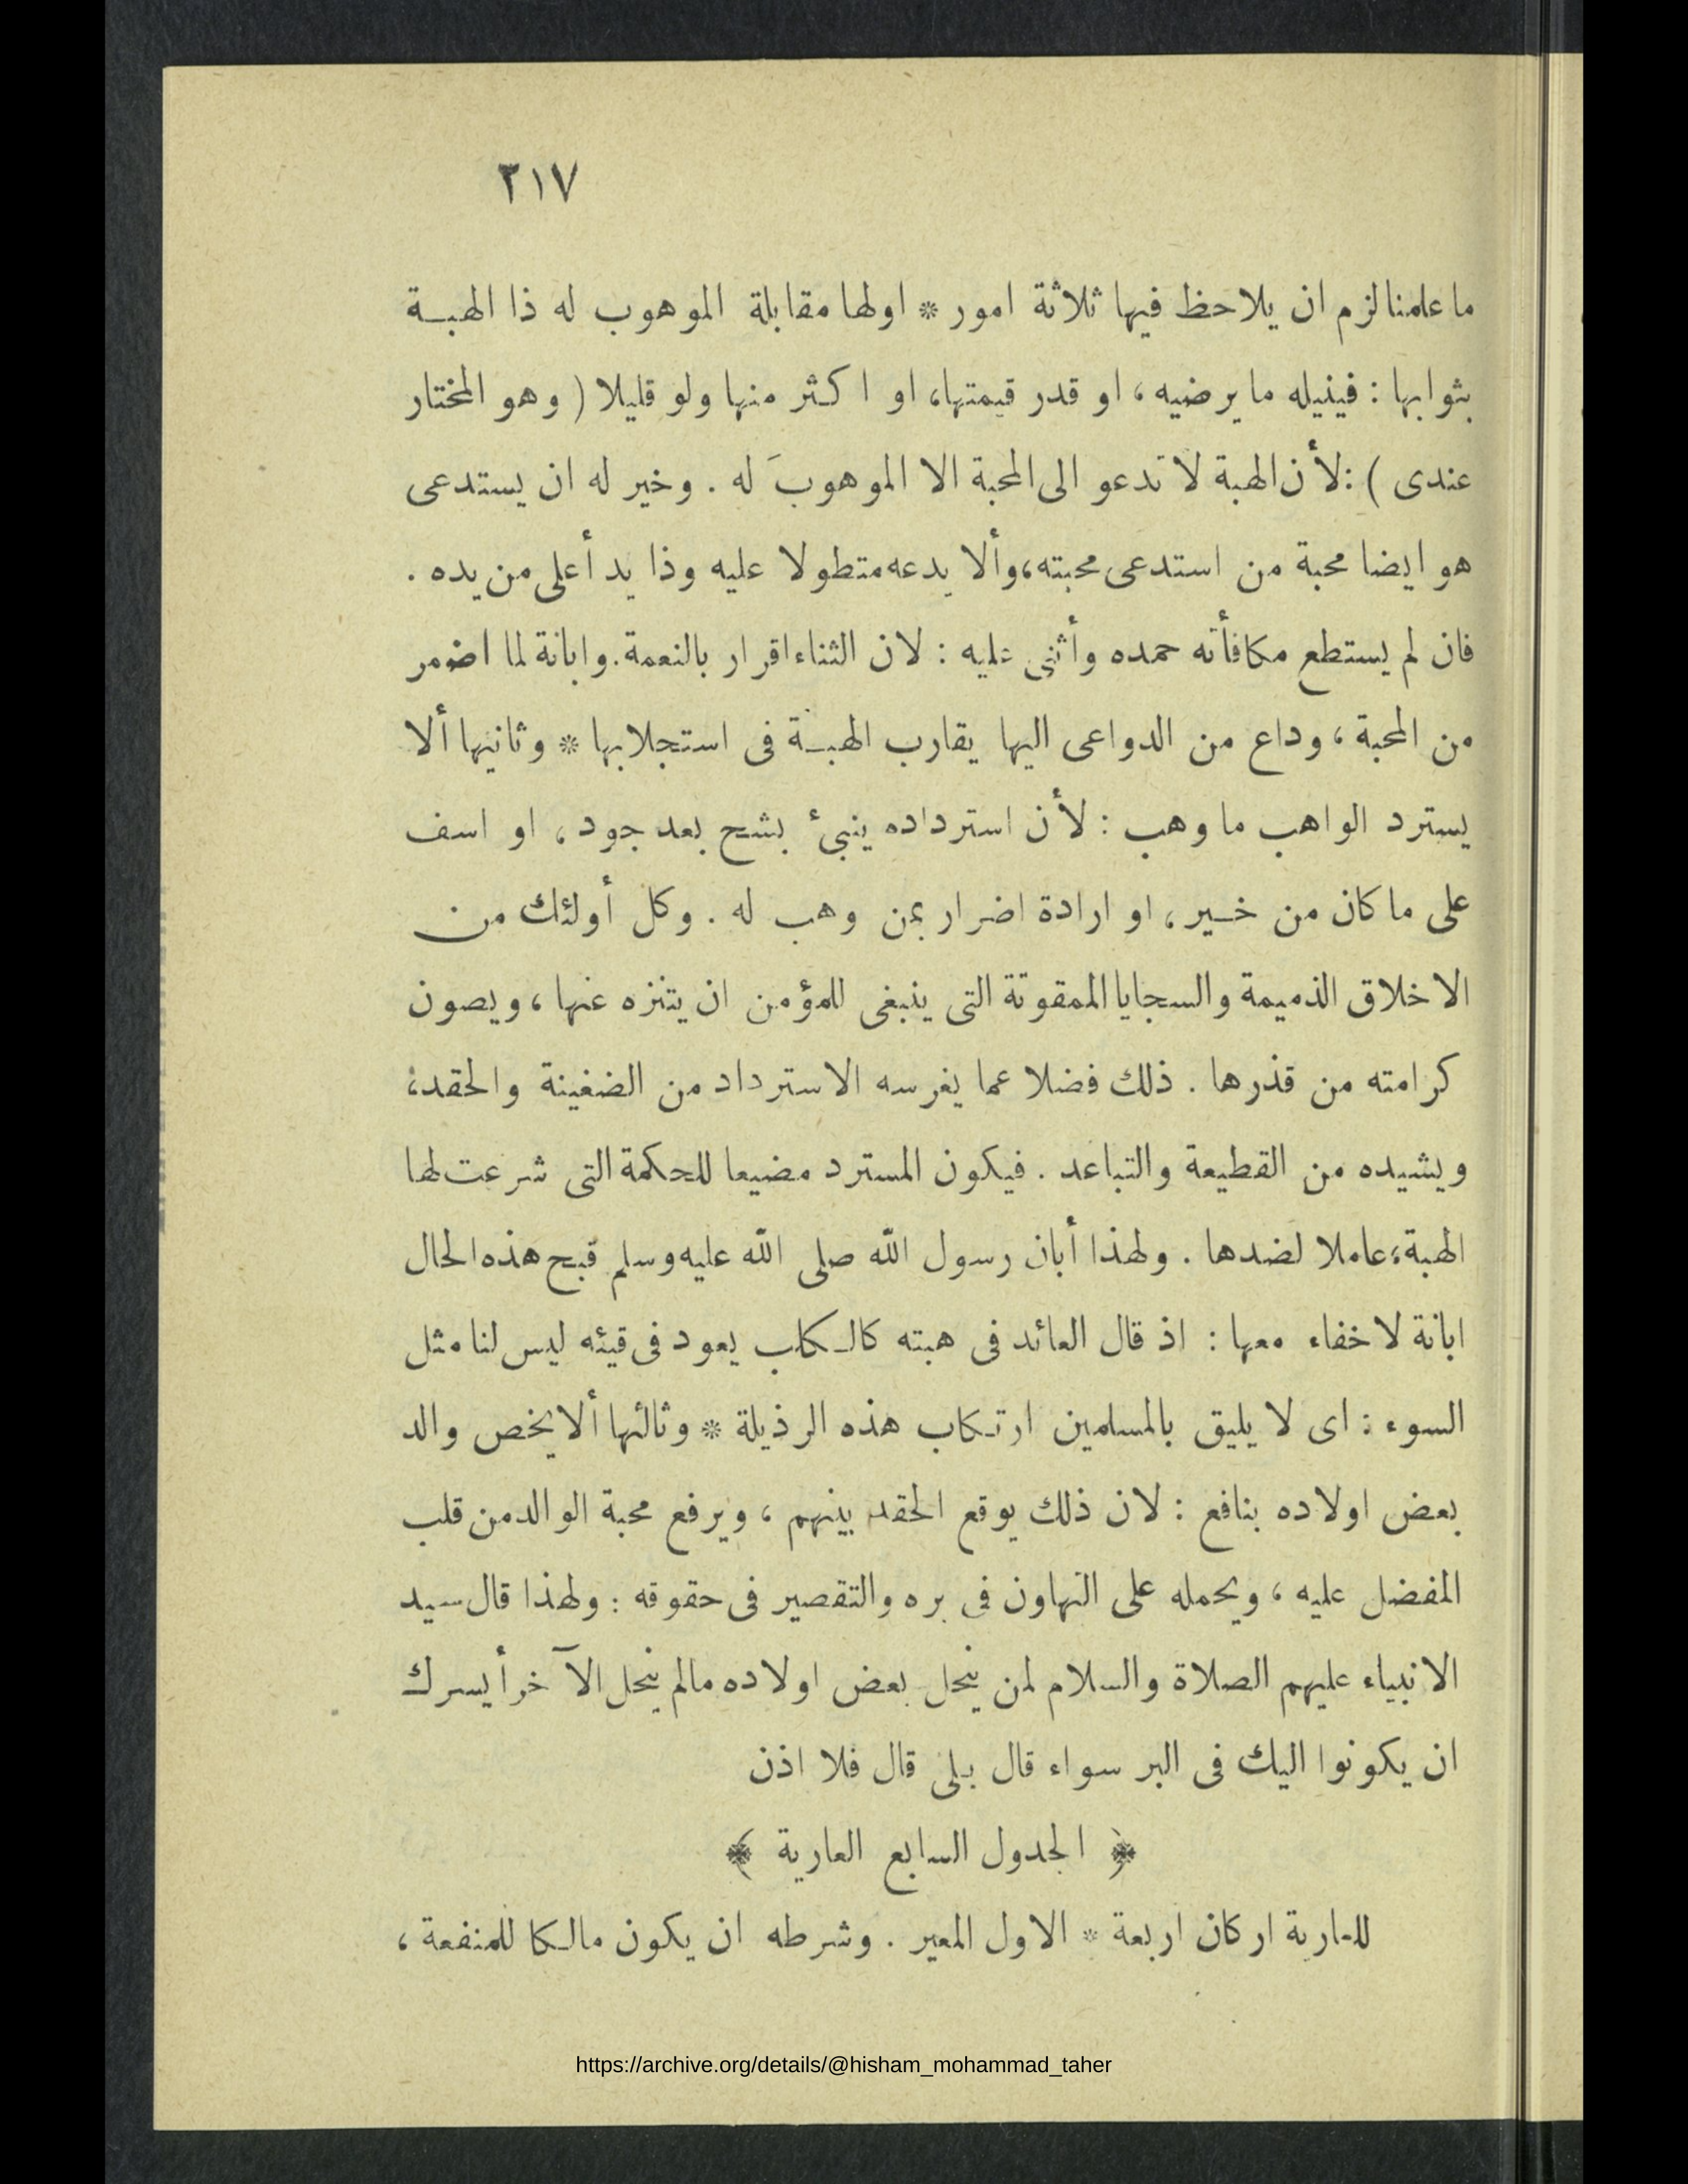 ٢١٧
ما علمنا لزم ان يلاحظ فيها ثلاثة امور * اولها مقابلة الموهوب له ذا الهبة
بثوابها : فينيله ما يرضيه ، او قدر قيمتها، او اكثر منها ولو قليلا ( وهو المختار
عندى ) : لأن الهبة لا تدعو الى المحبة الا الموهوبَ له . وخير له ان يستدعى
هو ايضا محبة من استدعى محبته، وألا يدعه متطولا عليه وذا يد أعلى من يده .
فان لم يستطع مكافأته حمده وأثنى عليه : لان الثناء اقرار بالنعمة. وابانة لما اضمر
من المحبة ، وداع من الدواعى اليها يقارب الهبة فى استجلابها * وثانيها ألا
يسترد الواهب ما وهب : لأن استرداده ينبئ بشح بعد جود ، او اسف
على ما كان من خير ، او ارادة اضرار بمن وهب له . وكل أولئك من
الاخلاق الذميمة والسجايا الممقوتة التى ينبغى للمؤمن ان يتنزه عنها ، ويصون
كرامته من قذرها . ذلك فضلا عما يغرسه الاسترداد من الضغينة والحقد،
ويشيده من القطيعة والتباعد . فيكون المسترد مضيعا للحكمة التى شرعت لها
الهبة، عاملا لضدها . ولهذا أبان رسول الله صلى الله عليه وسلم قبح هذه الحال
ابانة لا خفاء معها : اذ قال العائد فى هبته كالكلب يعود فى قيئه ليس لنا مثل
السوء : اى لا يليق بالمسلمين ارتكاب هذه الرذيلة * وثالثها ألا يخص والد
بعض اولاده بنافع : لان ذلك يوقع الحقد بينهم ، ويرفع محبة الوالد من قلب
المفضل عليه ، ويحمله على التهاون فى بره والتقصير فى حقوقه : ولهذا قال سيد
الانبياء عليهم الصلاة والسلام لمن ينحل بعض اولاده مالم ينحل الآخر أيسرك
ان يكونوا اليك فى البر سواء قال بلى قال فلا اذن
﴿ الجدول السابع العارية ﴾
للعارية اركان اربعة * الاول المعير . وشرطه ان يكون مالكا للمنفعة ،
https://archive.org/details/@hisham_mohammad_taher